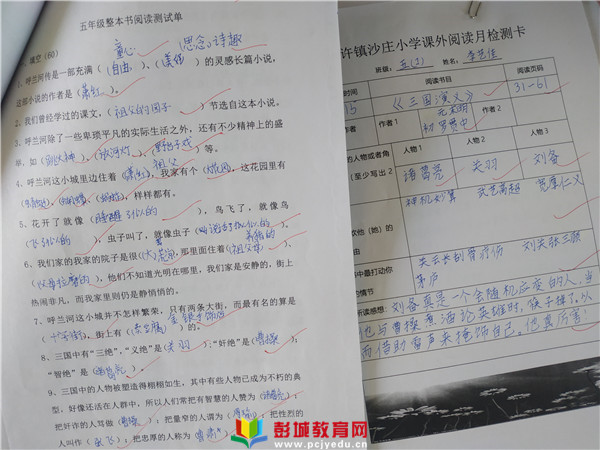 五年级整本书阅读测试单
一、填空(60)
童心 思念,诗趣
1、呼兰河传是一部充满(自由)、()的灵感长篇小说,
这部小说的作者是(萧红)。
2、我们曾经学过的课文,(祖父的园子)节选自这本小说。
3、呼兰河除了一些卑琐平凡的实际生活之外,还有不少精神上的盛
举,如(跳大神)、(放河灯)、()等。
4、呼兰河这小城里边住着(祖父),我家有个(大花园),这花园里有
(),样样都有。
5、花开了就像(睡醒了似的),鸟飞了,就像鸟
(飞了似的),虫子叫了,就像虫子()
6、我们家的院子是很()的,那里面住着(祖父母)
(),他们不知道光明在哪里,我们家是安静的,街上
热闹非凡,而我家里则仍是静悄悄的。
7、呼兰河这小城并不怎样繁华,只有两条大街,而最有名的算是
(十字街),街上有()的。
8、三国中有"三绝","义绝"是(关羽),"奸绝"是(曹操)
"智绝"是(诸葛亮)。
9、三国中的人物被塑造得栩栩如生,其中有些人物已成为不朽的典
型,好像还活在人群中,所以人们常把有智慧的人赞为(诸葛亮)
把奸诈的人骂做(曹操),把量窄的人谓为(周瑜),把性烈的
人叫作(张飞),把忠厚的人称为()
许镇沙庄小学课外阅读月检测卡
班级:五(1) 姓名:
阅读书目 阅读页码
15 《三国演义》 31-61
作者 作者1 元末明初罗贯中 作者2
的人物或者角 人物1 人物2 人物3
(至少写出2 诸葛亮 关羽 刘备
欢他(她)的 神机妙算 武艺高超 宽厚仁义
书中最打动你 关云长刮骨疗伤 刘关张三顾
的情节 茅庐
所读感想:刘备真是一个会随机应变的人,当
他与曹操煮酒论英雄时,筷子掉了,以
而借助雷声来掩饰自己。他真厉害!
彭城教育网
www.pcjyedu.cn